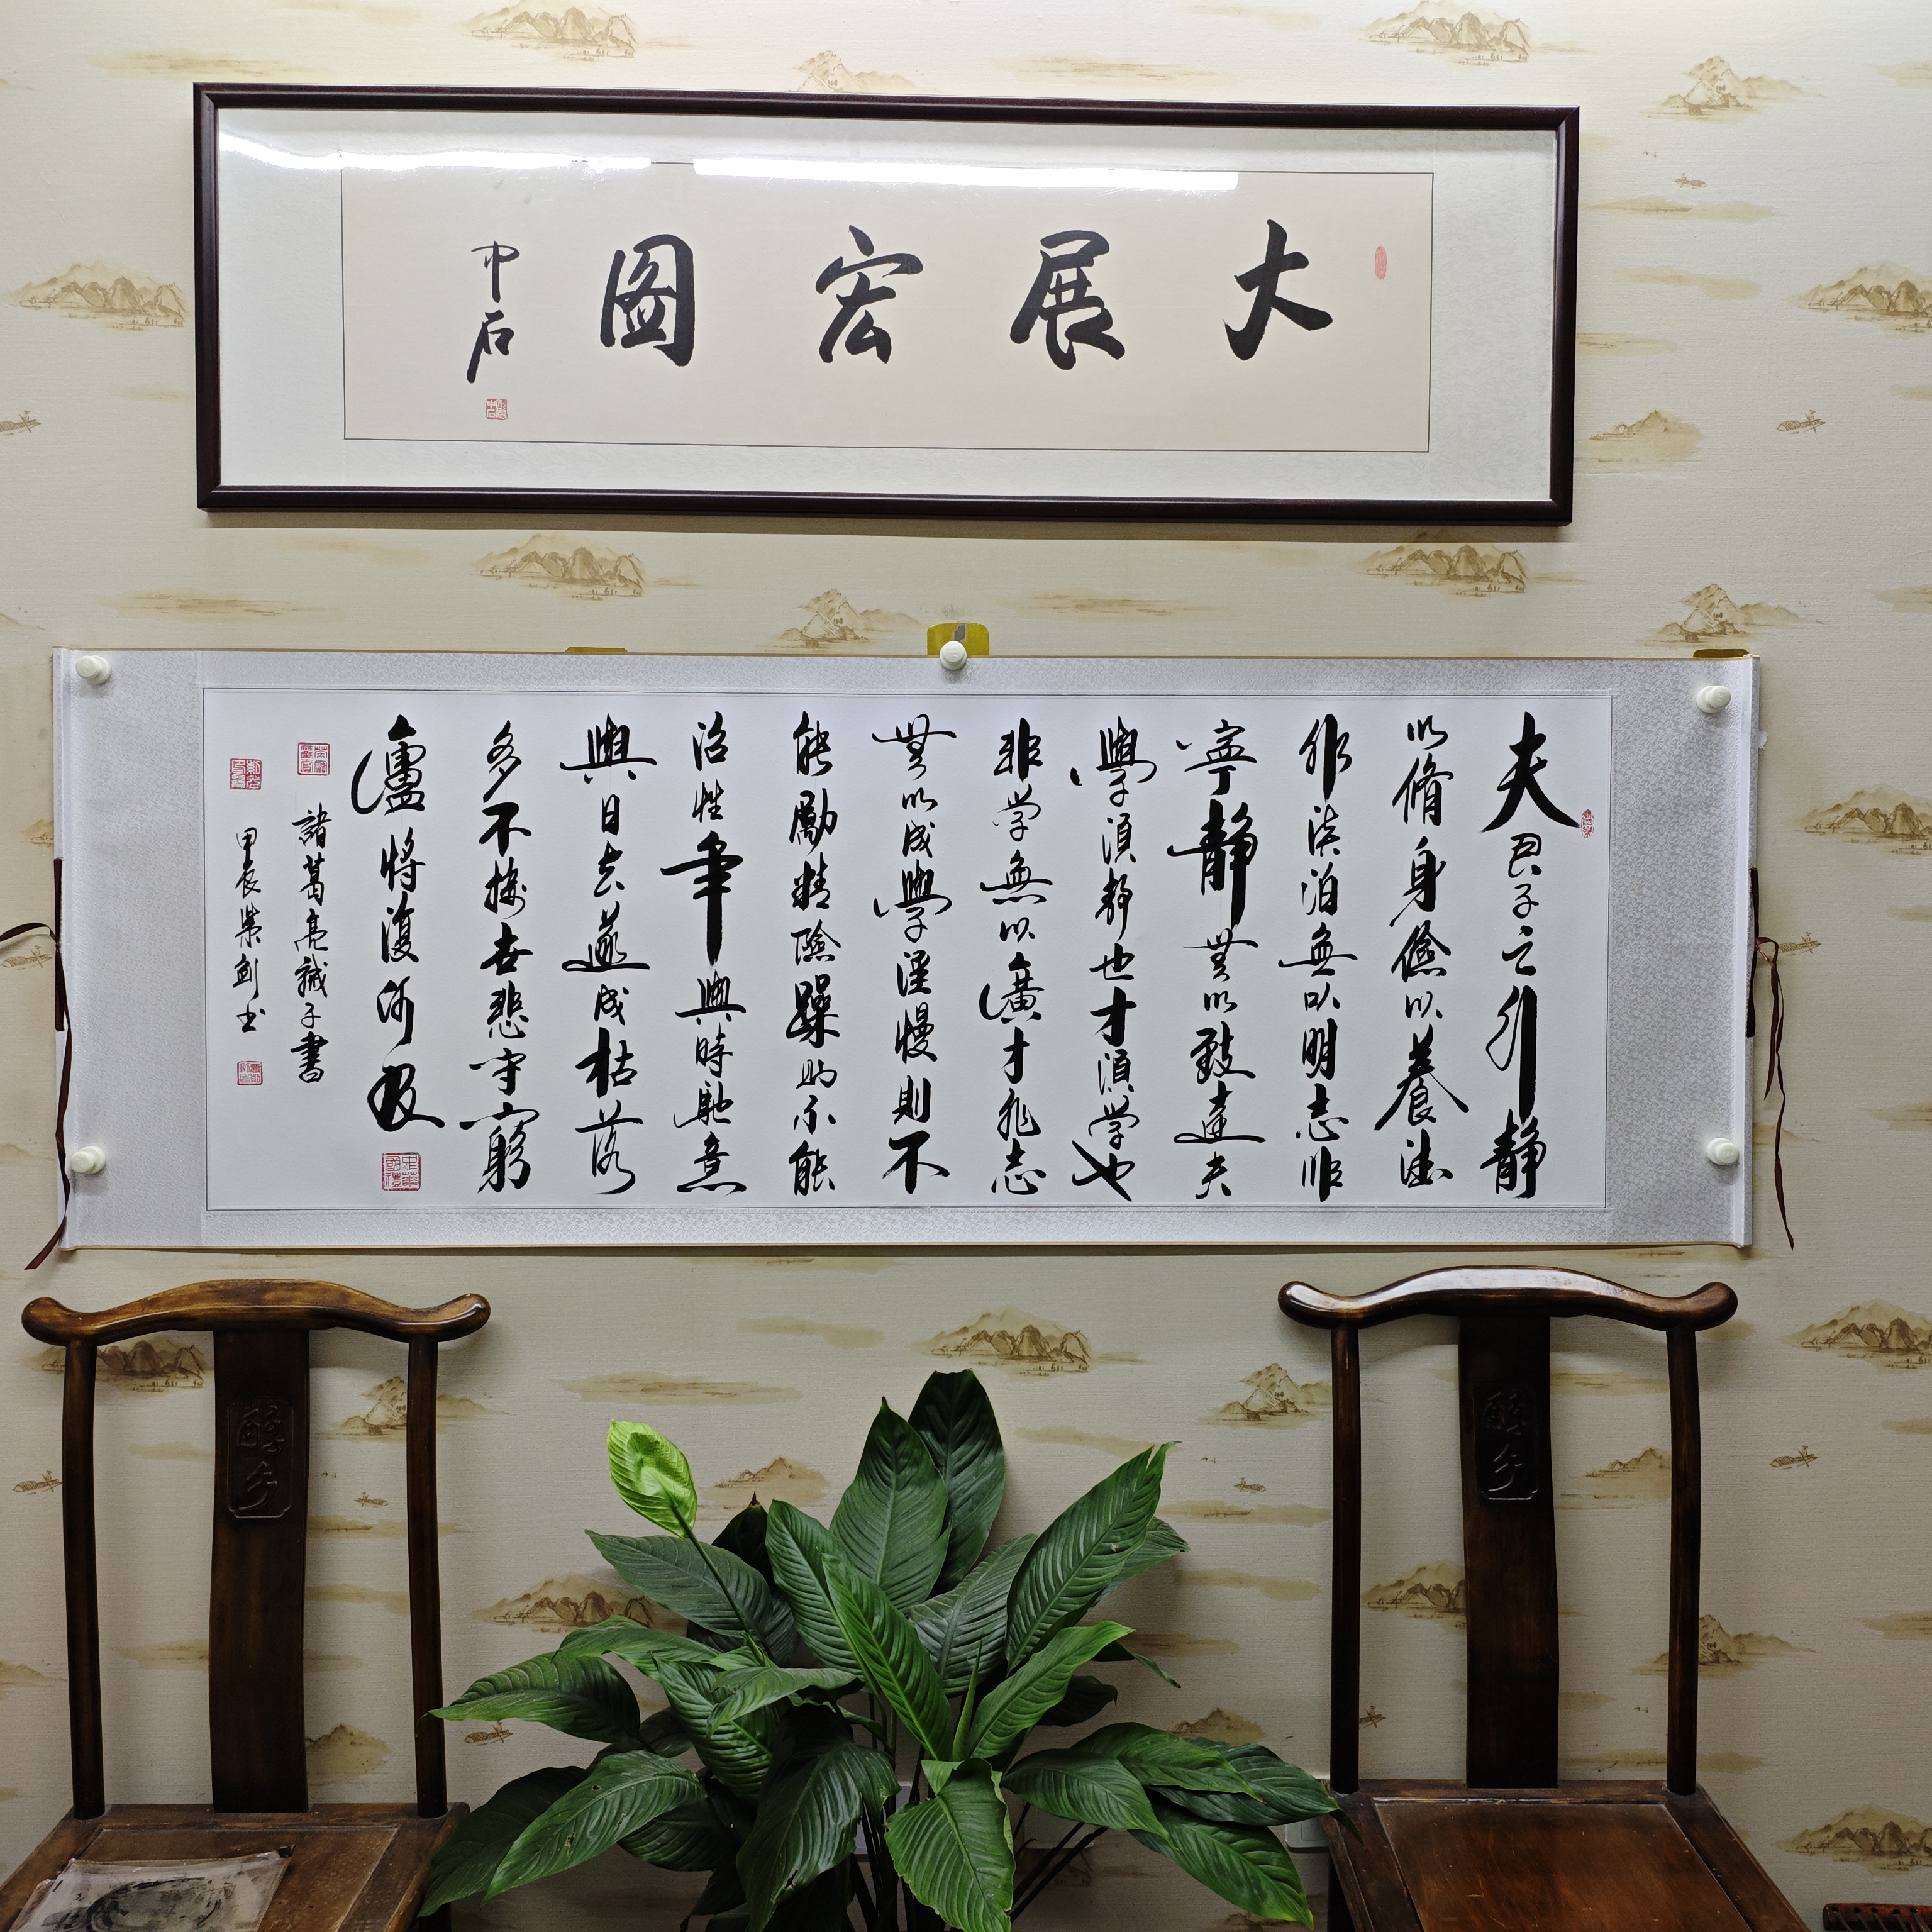 大展宏圖
中石
夫君子之行静
以脩身儉以養德
非淡泊無以明志非
寧静無以致遠夫
學須静也才須学也
非学無以廣才非志
無以成學淫慢則不
能勵精險躁則不能
治性年與時馳意
與日去遂成枯落
多不接世悲守窮
廬將復何及
諸葛亮誡子書
甲辰 劍书
醉乡
醉乡